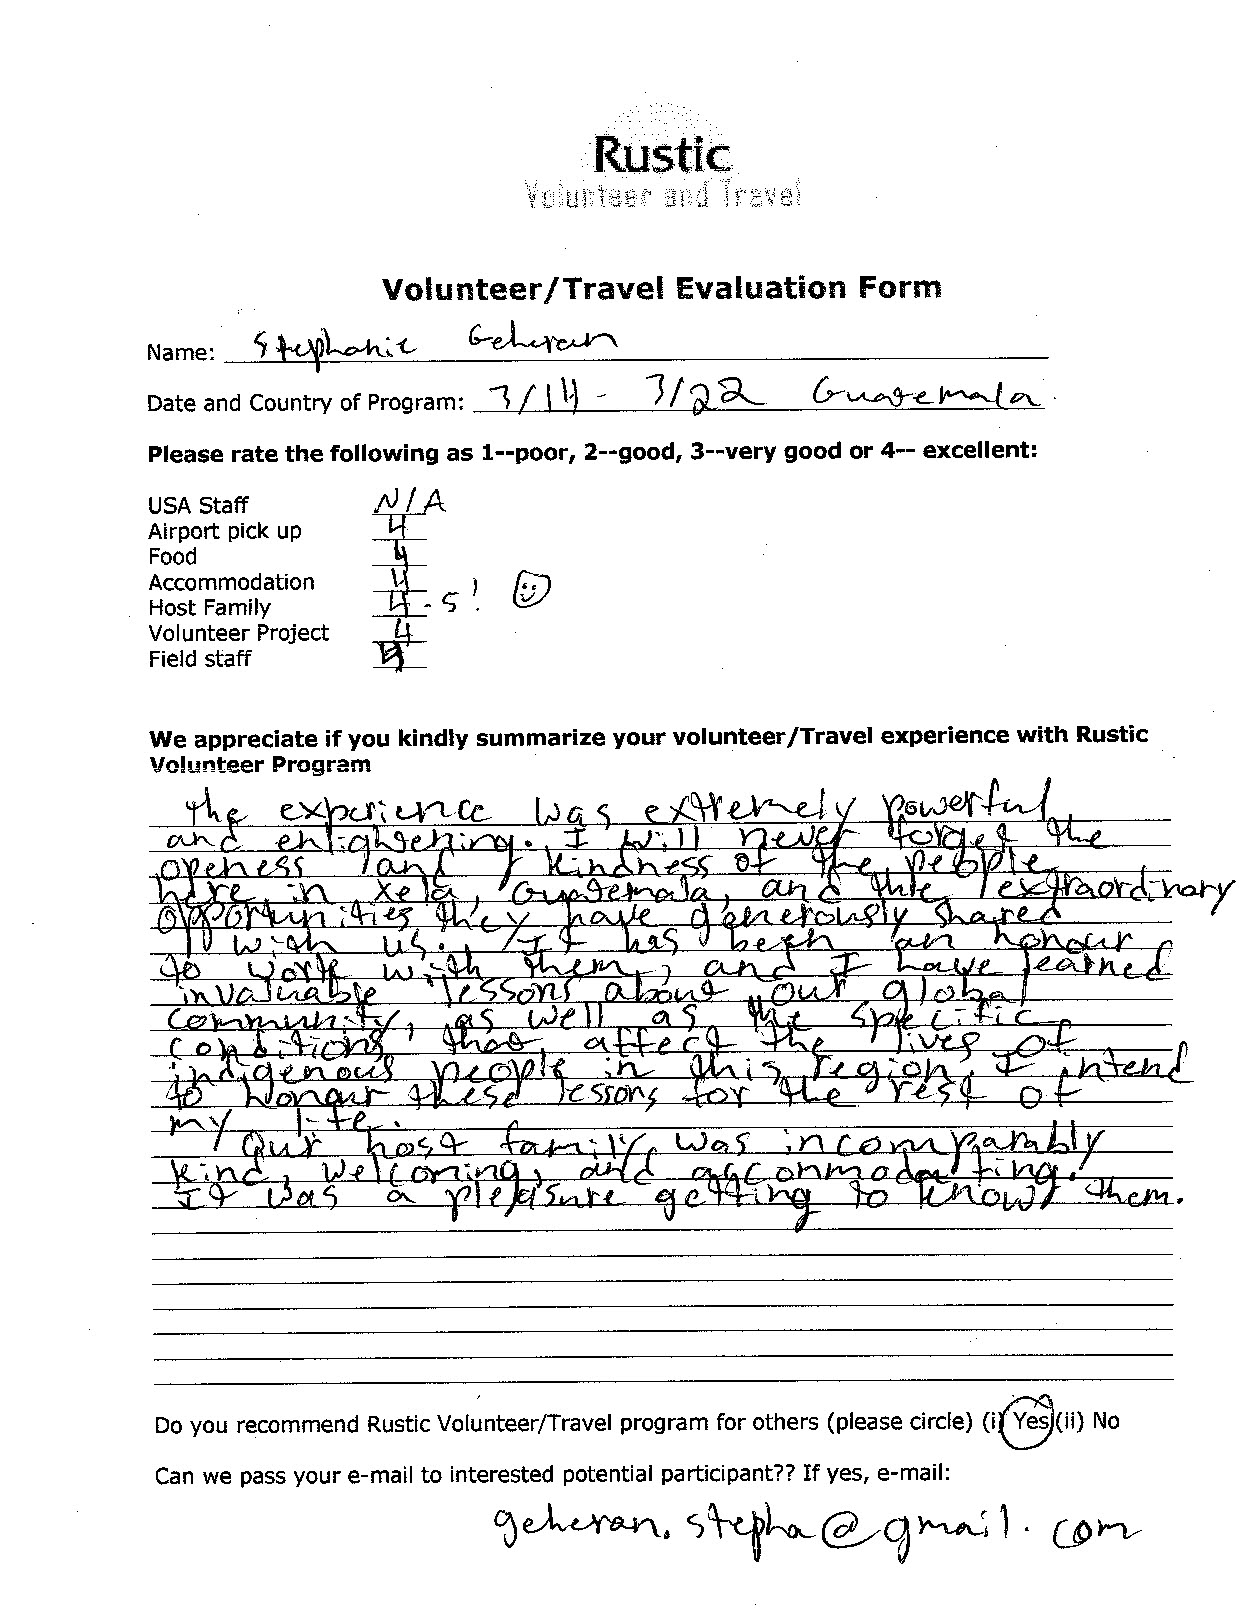 Rustic
Volunteer and Travel
Volunteer/Travel Evaluation Form
Name: Stephanie Geheran
Date and Country of Program: 3/14 - 3/22 Guatemala
Please rate the following as 1--poor, 2--good, 3--very good or 4-- excellent:
USA Staff N/A
Airport pick up 4
Food 4
Accommodation 4
Host Family 4.5!
Volunteer Project 4
Field staff 4
We appreciate if you kindly summarize your volunteer/Travel experience with Rustic
Volunteer Program
The experience was extremely powerful
and enlightening. I will never forget the
openess and kindness of the people
here in Xela, Guatemala, and the extraordinary
opportunities they have generously shared
with us. It has been an honour
to work with them, and I have learned
invaluable lessons about our global
community, as well as the specific
conditions that affect the lives of
indigenous people in this region. I intend
to honour these lessons for the rest of
my life.
Our host family was incomparably
kind, welcoming, and accommodating.
It was a pleasure getting to know them.
Do you recommend Rustic Volunteer/Travel program for others (please circle) (i) Yes (ii) No
Can we pass your e-mail to interested potential participant?? If yes, e-mail:
geheran.stepha@gmail.com